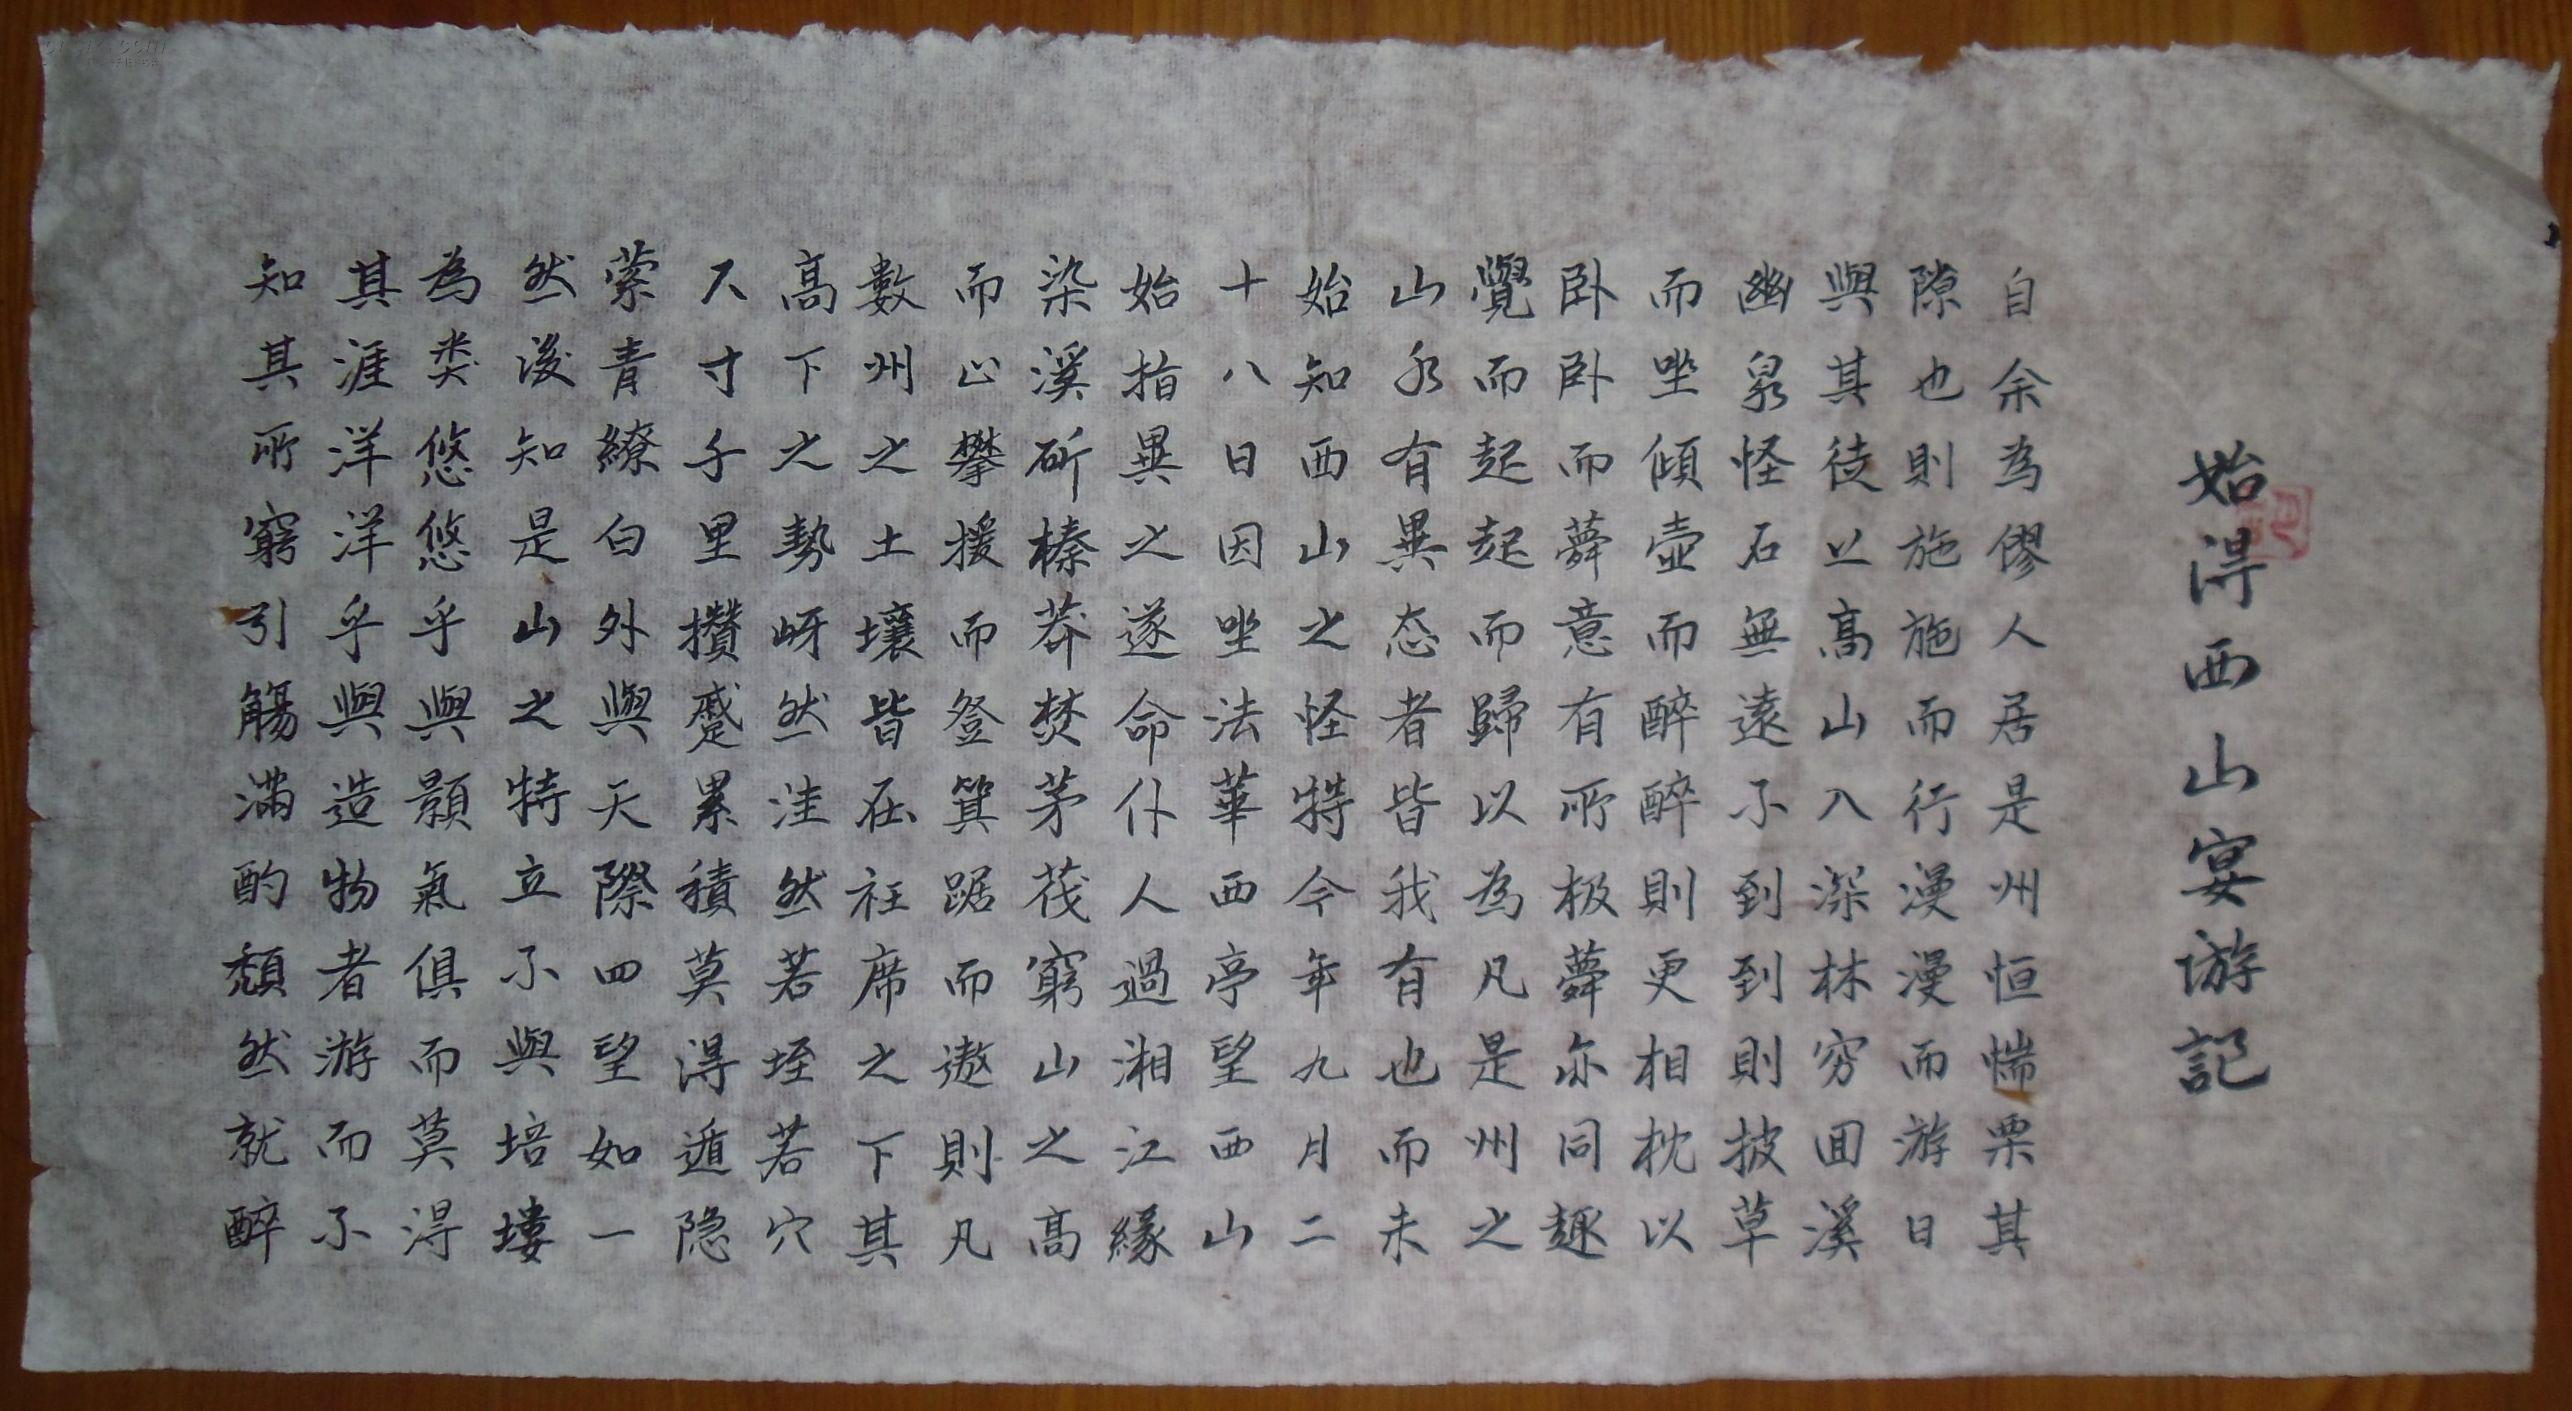 始得西山宴游記
自余為僇人居是州恒惴栗其
隙也則施施而行漫漫而游日
與其徒上高山入深林穷回溪
幽泉怪石無遠不到到則披草
而坐傾壺而醉醉則更相枕以
卧卧而夢意有所极夢亦同趣
覺而起起而歸以為凡是州之
山水有異态者皆我有也而未
始知西山之怪特今年九月二
十八日因坐法華西亭望西山
始指異之遂命仆人過湘江緣
染溪斫榛莽焚茅茷窮山之高
而止攀援而登箕踞而遨則凡
數州之土壤皆在衽席之下其
高下之勢岈然洼然若垤若穴
尺寸千里攢蹙累積莫得遁隐
萦青繚白外與天際四望如一
然後知是山之特立不與培塿
為类悠悠乎與顥氣俱而莫得
其涯洋洋乎與造物者游而不
知其所窮引觴滿酌頹然就醉